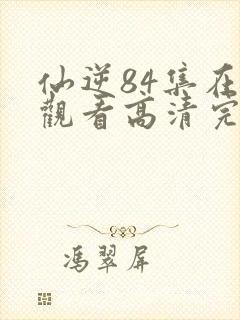 仙逆84集在
觀看高清完
馮翠屏